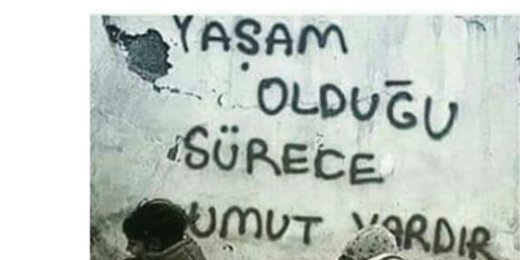 YAŞAM
OLDUĞU
SÜRECE
UMUT VARDIR